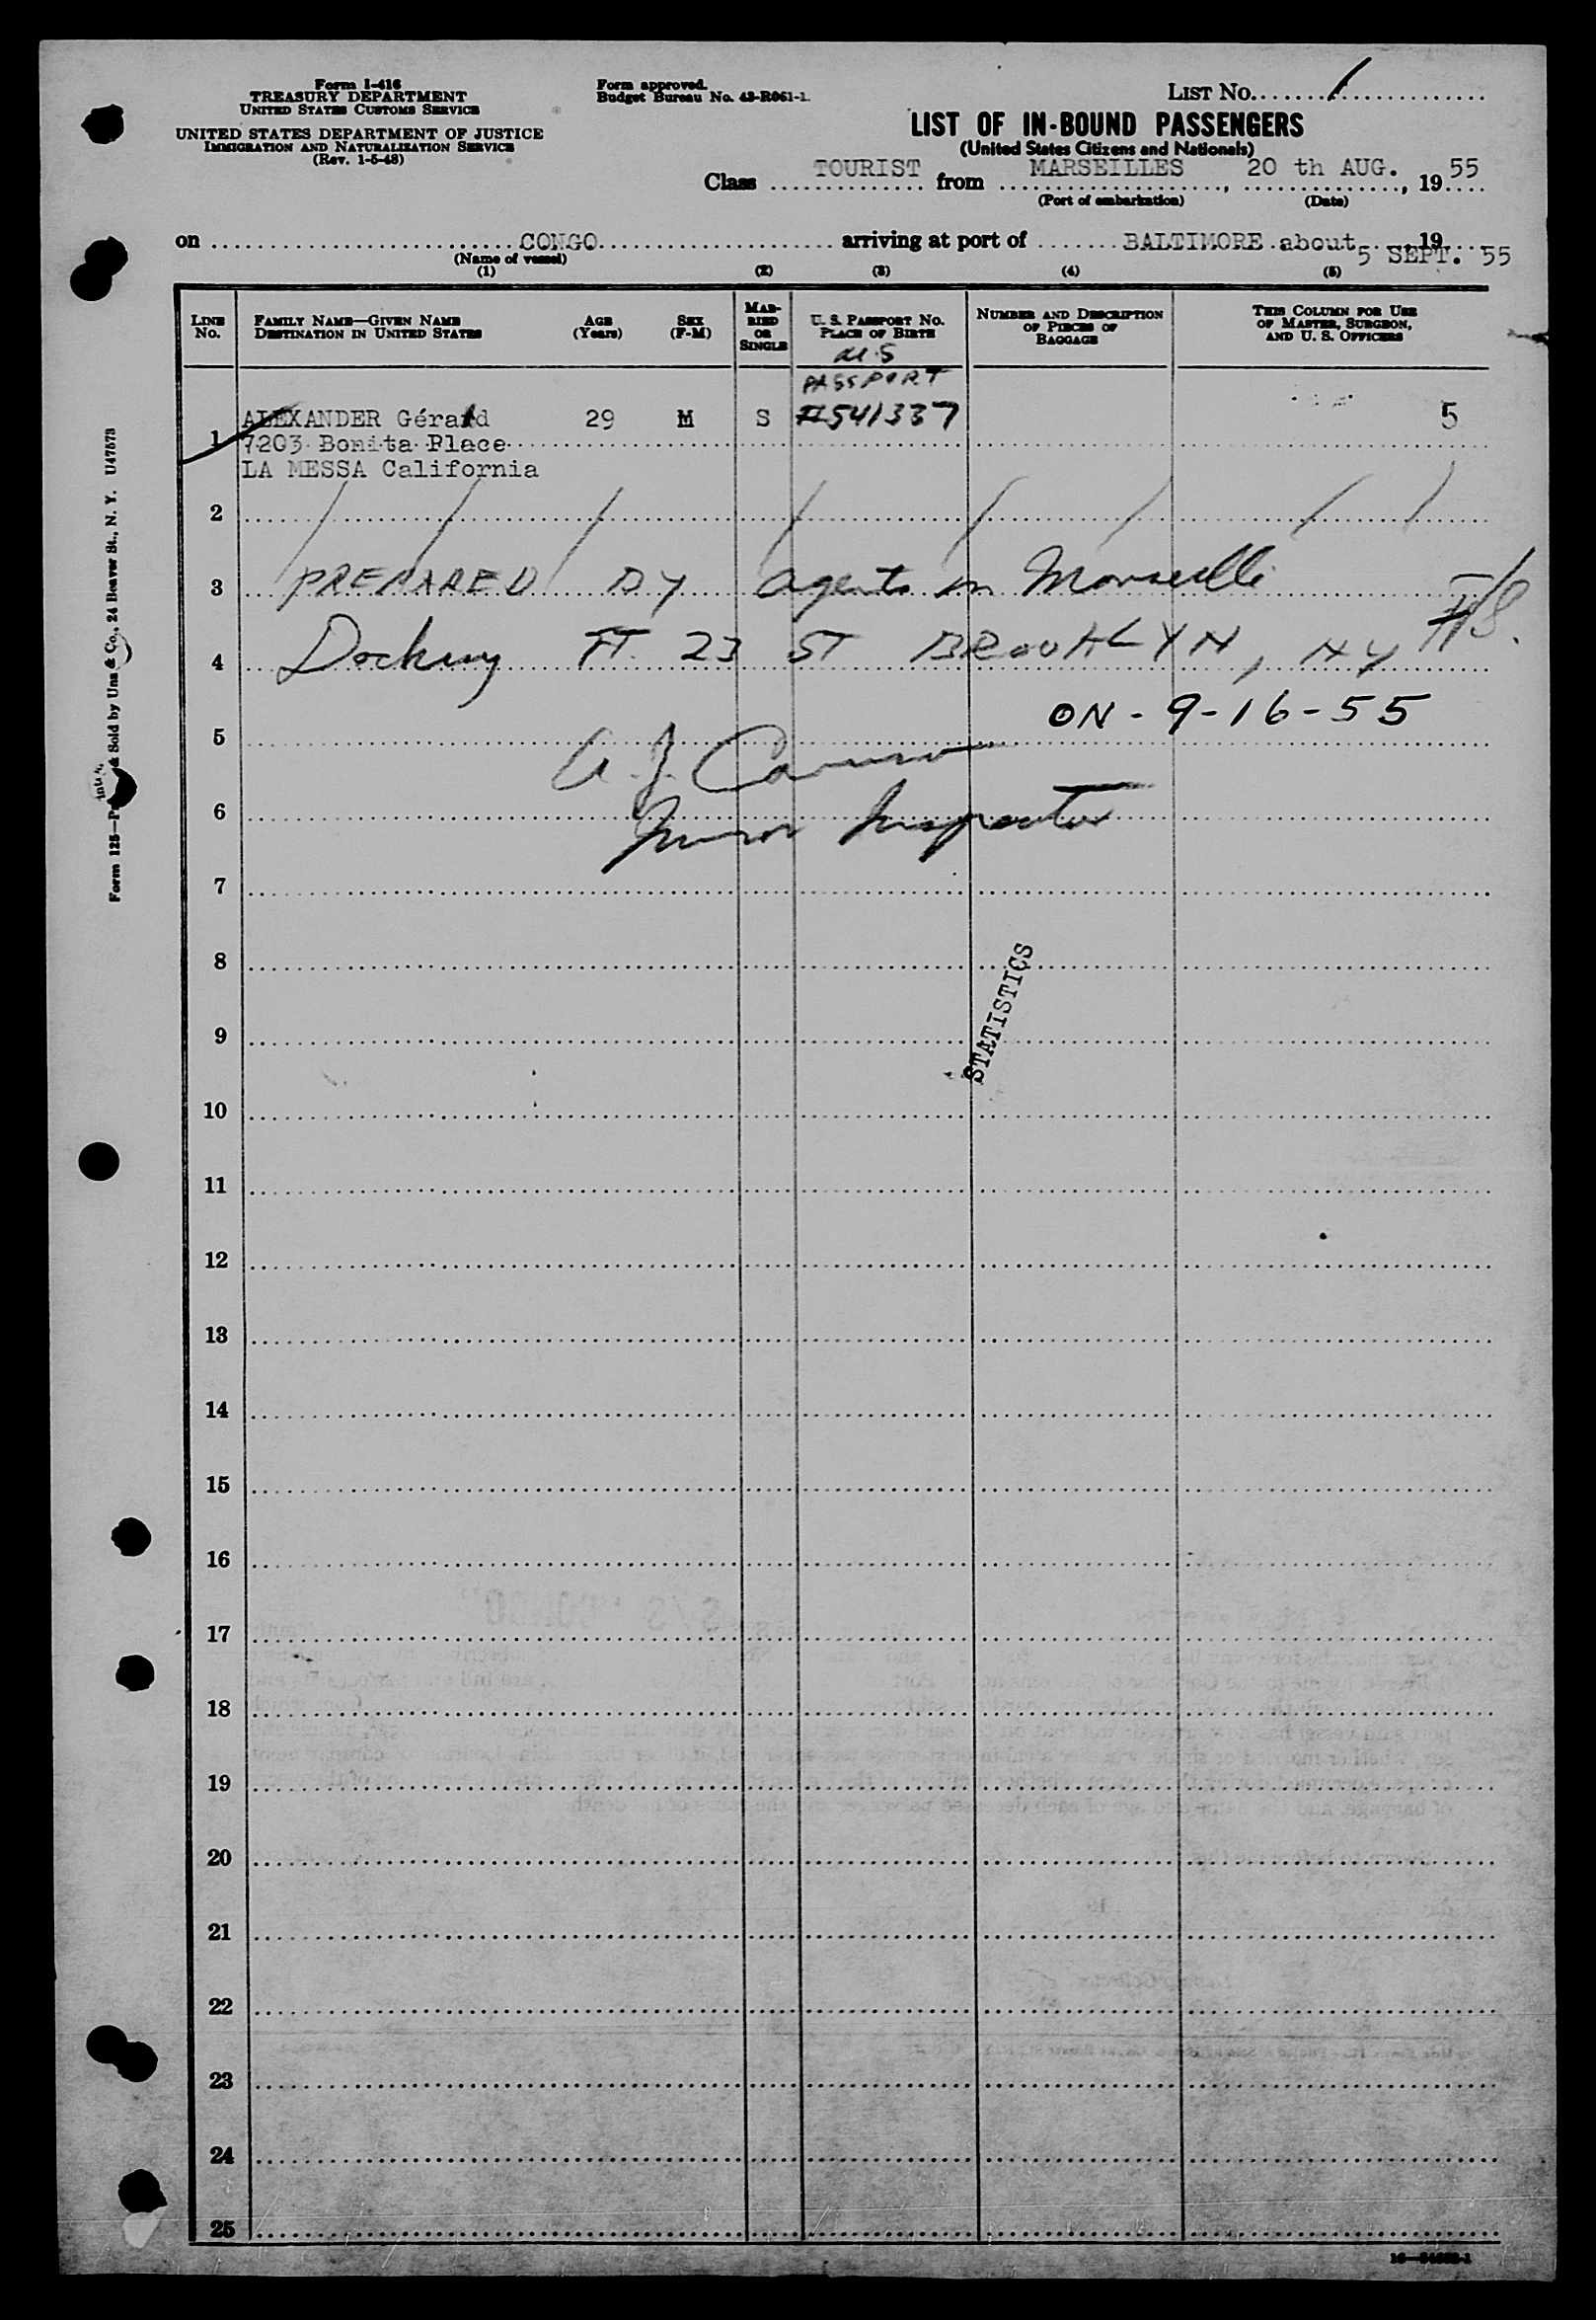 Form I-416
TREASURY DEPARTMENT
UNITED STATES CUSTOMS SERVICE
UNITED STATES DEPARTMENT OF JUSTICE
IMMIGRATION AND NATURALIZATION SERVICE
(Rev. 1-5-48)
Form approved.
Budget Bureau No. 43-R061-1.
LIST No. 1
LIST OF IN-BOUND PASSENGERS
(United States Citizens and Nationals)
Class TOURIST from MARSEILLES, 20 th AUG., 19 55
(Port of embarkation) (Date)
on CONGO arriving at port of BALTIMORE about 5 SEPT., 19 55
(Name of vessel)
(1) (2) (3) (4) (5)
LINE No. FAMILY NAME—GIVEN NAME DESTINATION IN UNITED STATES AGE (Years) SEX (F-M) MARRIED OR SINGLE U. S. PASSPORT NO. PLACE OF BIRTH NUMBER AND DESCRIPTION OF PIECES OF BAGGAGE THIS COLUMN FOR USE OF MASTER, SURGEON, AND U. S. OFFICERS
U.S
PASSPORT
1 ALEXANDER Gérard 29 M S #541337 5
7203 Bonita Place
LA MESSA California
2
3 PREPARED BY agents in Marseille
4 Docking FT. 23 ST BROOKLYN, NY
ON - 9-16-55
5
A. J.
6
Inspector
7
8
STATISTICS
9
10
11
12
13
14
15
16
17
18
19
20
21
22
23
24
25
Form 125—Printed & Sold by Unz & Co., 24 Beaver St., N. Y. U47573